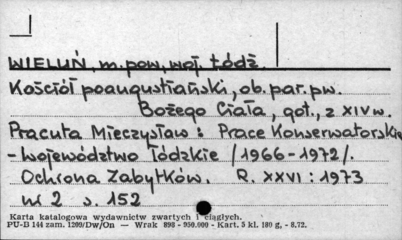 WIELUŃ, m. pow., woj. Łódź.
Kościół poaugustiański, ob. par. pw.
Bożego Ciała, got., z XIV w.
Pracuta Mieczysław : Prace Konserwatorskie
- województwo łódzkie /1966-1972/.
Ochrona Zabytków. R. XXVI : 1973
nr 2 s. 152
Karta katalogowa wydawnictw zwartych i ciągłych.
PU-B 144 zam. 1209/Dw/On — Wrak 898 - 950.000 - Kart. 5 kl. 180 g, - 8.72.